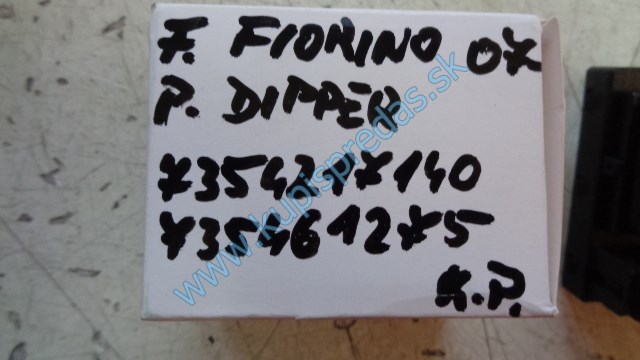 F. FIORINO 07
P. DIPPER
7354217140
735461275
K.P.
www.kupispredas.sk